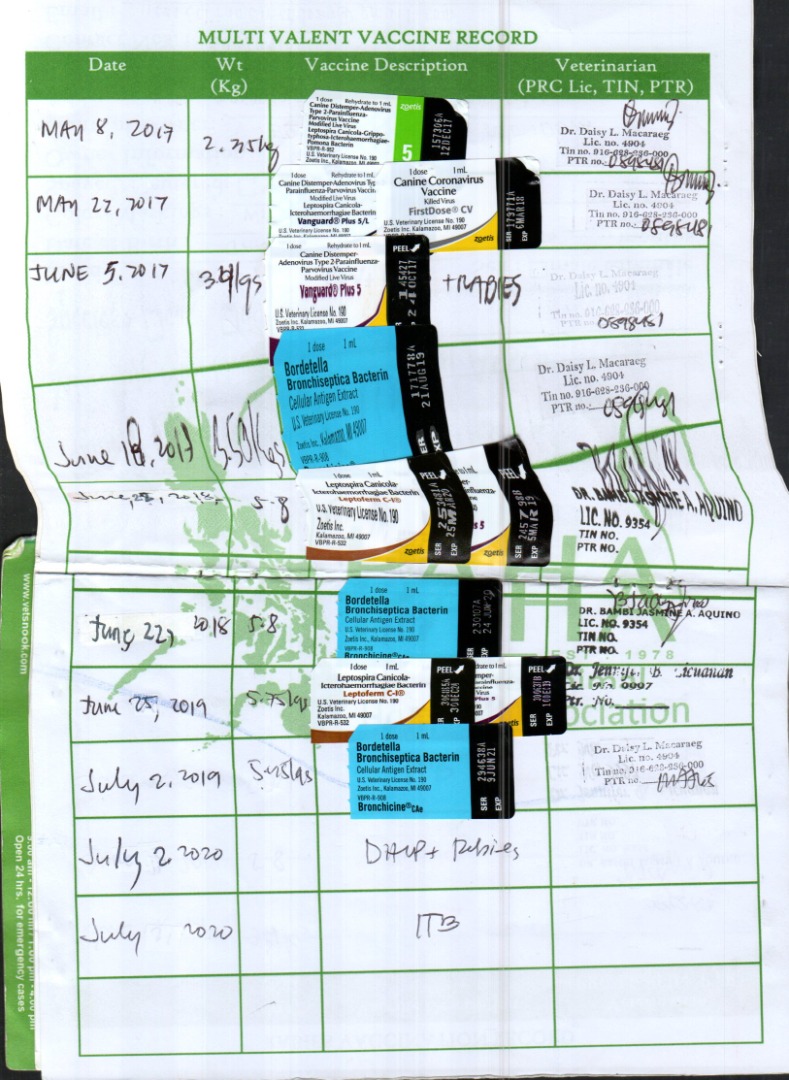 MULTI VALENT VACCINE RECORD
Date
Wt
(Kg)
Vaccine Description
Veterinarian
(PRC Lic, TIN, PTR)
MAY 8, 2017
1 dose Rehydrate to 1 mL
Canine Distemper-Adenovirus
Type 2-Parainfluenza-
Parvovirus Vaccine
Modified Live Virus
Leptospira Canicola-Grippo-
typhosa-Icterohaemorrhagiae-
Pomona Bacterin
VBPR-R-952
U.S. Veterinary License No. 190
Zoetis Inc., Kalamazoo, MI
zoetis
5
157306A
12DEC17
Dr. Daisy L. Macaraeg
Lic. no. 4904
Tin no. 916-628-236-000
PTR no. 0598481
MAY 22, 2017
1 dose Rehydrate to 1 mL
Canine Distemper-Adenovirus Typ
Parainfluenza-Parvovirus Vaccin
Modified Live Virus
Leptospira Canicola-
Icterohaemorrhagiae Bacterin
Vanguard® Plus 5/L
U.S. Veterinary License No. 190
Zoetis Inc., Kalamazoo, MI 49007
1 dose 1 mL
Canine Coronavirus
Vaccine
Killed Virus
FirstDose® CV
U.S. Veterinary License No. 190
Zoetis Inc., Kalamazoo, MI 49007
zoetis
SER 179771A
EXP 6MAR18
Dr. Daisy L. Macaraeg
Lic. no. 4904
Tin no. 916-628-236-000
PTR no. 0598481
JUNE 5, 2017
1 dose Rehydrate to 1 mL
Canine Distemper-
Adenovirus Type 2-Parainfluenza-
Parvovirus Vaccine
Modified Live Virus
Vanguard® Plus 5
U.S. Veterinary License No. 190
Zoetis Inc., Kalamazoo, MI 49007
PEEL
+ RABIES
Dr. Daisy L. Macaraeg
Lic. no. 4904
Tin no. 916-628-236-000
PTR no. 0598481
June 18, 2017
1 dose 1 mL
Bordetella
Bronchiseptica Bacterin
Cellular Antigen Extract
U.S. Veterinary License No. 190
Zoetis Inc., Kalamazoo, MI 49007
VBPR-R-908
171778A
21AUG19
Dr. Daisy L. Macaraeg
Lic. no. 4904
Tin no. 916-628-236-000
PTR no. 0598481
5.8
Leptospira Canicola-
Icterohaemorrhagiae Bacterin
Leptoferm C-I®
U.S. Veterinary License No. 190
Zoetis Inc.
Kalamazoo, MI 49007
VBPR-R-532
zoetis
PEEL
SER
EXP
PEEL
SER
EXP
DR. BAMBI JASMINE A. AQUINO
LIC. NO. 9354
TIN NO.
PTR NO.
June 22, 2018
5.8
1 dose 1 mL
Bordetella
Bronchiseptica Bacterin
Cellular Antigen Extract
U.S. Veterinary License No. 190
Zoetis Inc., Kalamazoo, MI 49007
VBPR-R-908
Bronchicine®CAe
SER
EXP
DR. BAMBI JASMINE A. AQUINO
LIC. NO. 9354
TIN NO.
PTR NO.
1978
June 25, 2019
1 dose 1 mL
Leptospira Canicola-
Icterohaemorrhagiae Bacterin
Leptoferm C-I®
U.S. Veterinary License No. 190
Zoetis Inc.
Kalamazoo, MI 49007
VBPR-R-532
zoetis
PEEL
SER
EXP
PEEL
SER
EXP
July 2, 2019
1 dose 1 mL
Bordetella
Bronchiseptica Bacterin
Cellular Antigen Extract
U.S. Veterinary License No. 190
Zoetis Inc., Kalamazoo, MI 49007
VBPR-R-908
Bronchicine®CAe
SER 294638A
EXP 9JUN21
Dr. Daisy L. Macaraeg
Lic. no. 4904
Tin no. 916-628-236-000
PTR no.
July 2 2020
July 2020
www.vetsbook.com
Open 24 hrs. for emergency cases